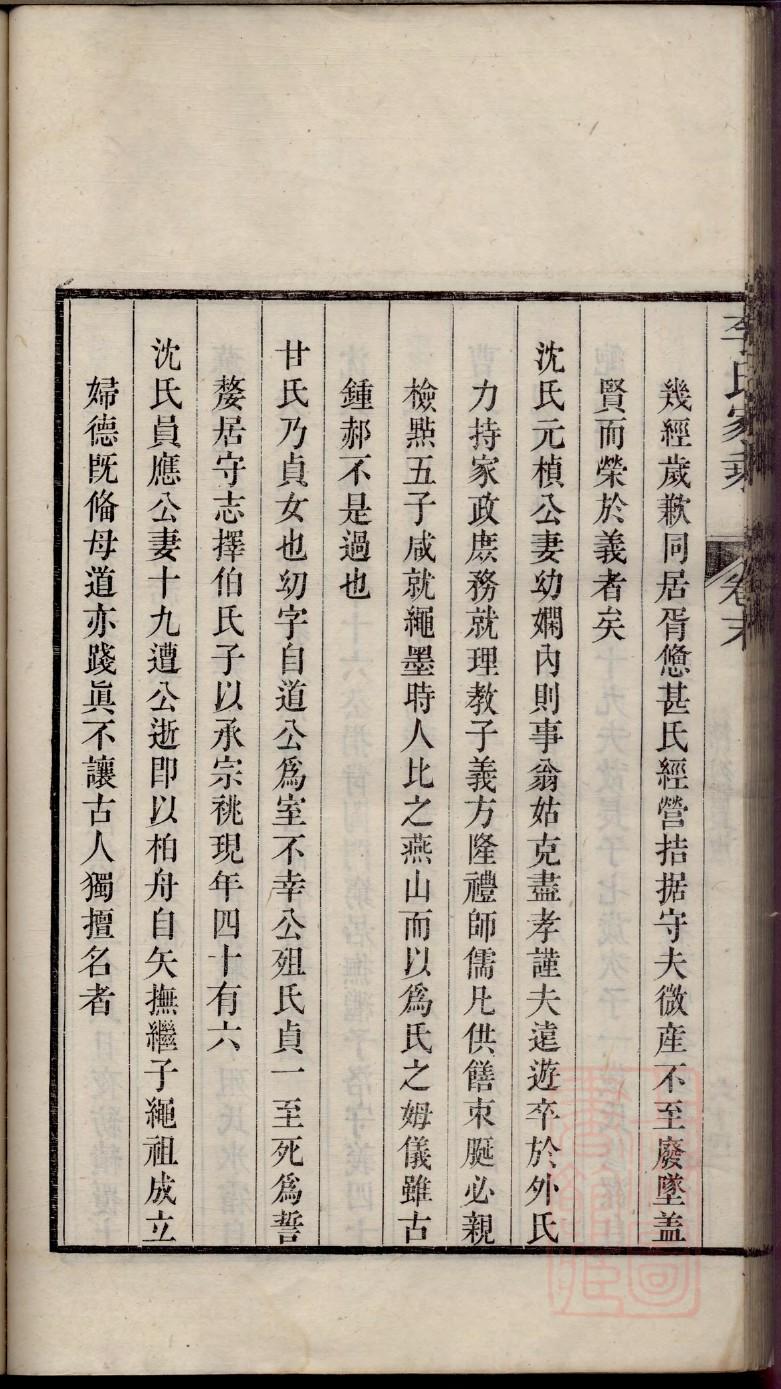 李氏家乘
卷末
幾經歲歉同居胥憊甚氏經營拮据守夫微產不至廢墜盖
賢而榮於義者矣
沈氏元楨公妻幼嫻內則事翁姑克盡孝謹夫遠遊卒於外氏
力持家政庶務就理教子義方隆禮師儒凡供饍束脡必親
檢點五子咸就繩墨時人比之燕山而以爲氏之姆儀雖古
鍾郝不是過也
甘氏乃貞女也幼字自道公爲室不幸公殂氏貞一至死爲誓
嫠居守志擇伯氏子以承宗祧現年四十有六
沈氏員應公妻十九遭公逝即以柏舟自矢撫繼子繩祖成立
婦德旣偹母道亦踐眞不讓古人獨擅名者